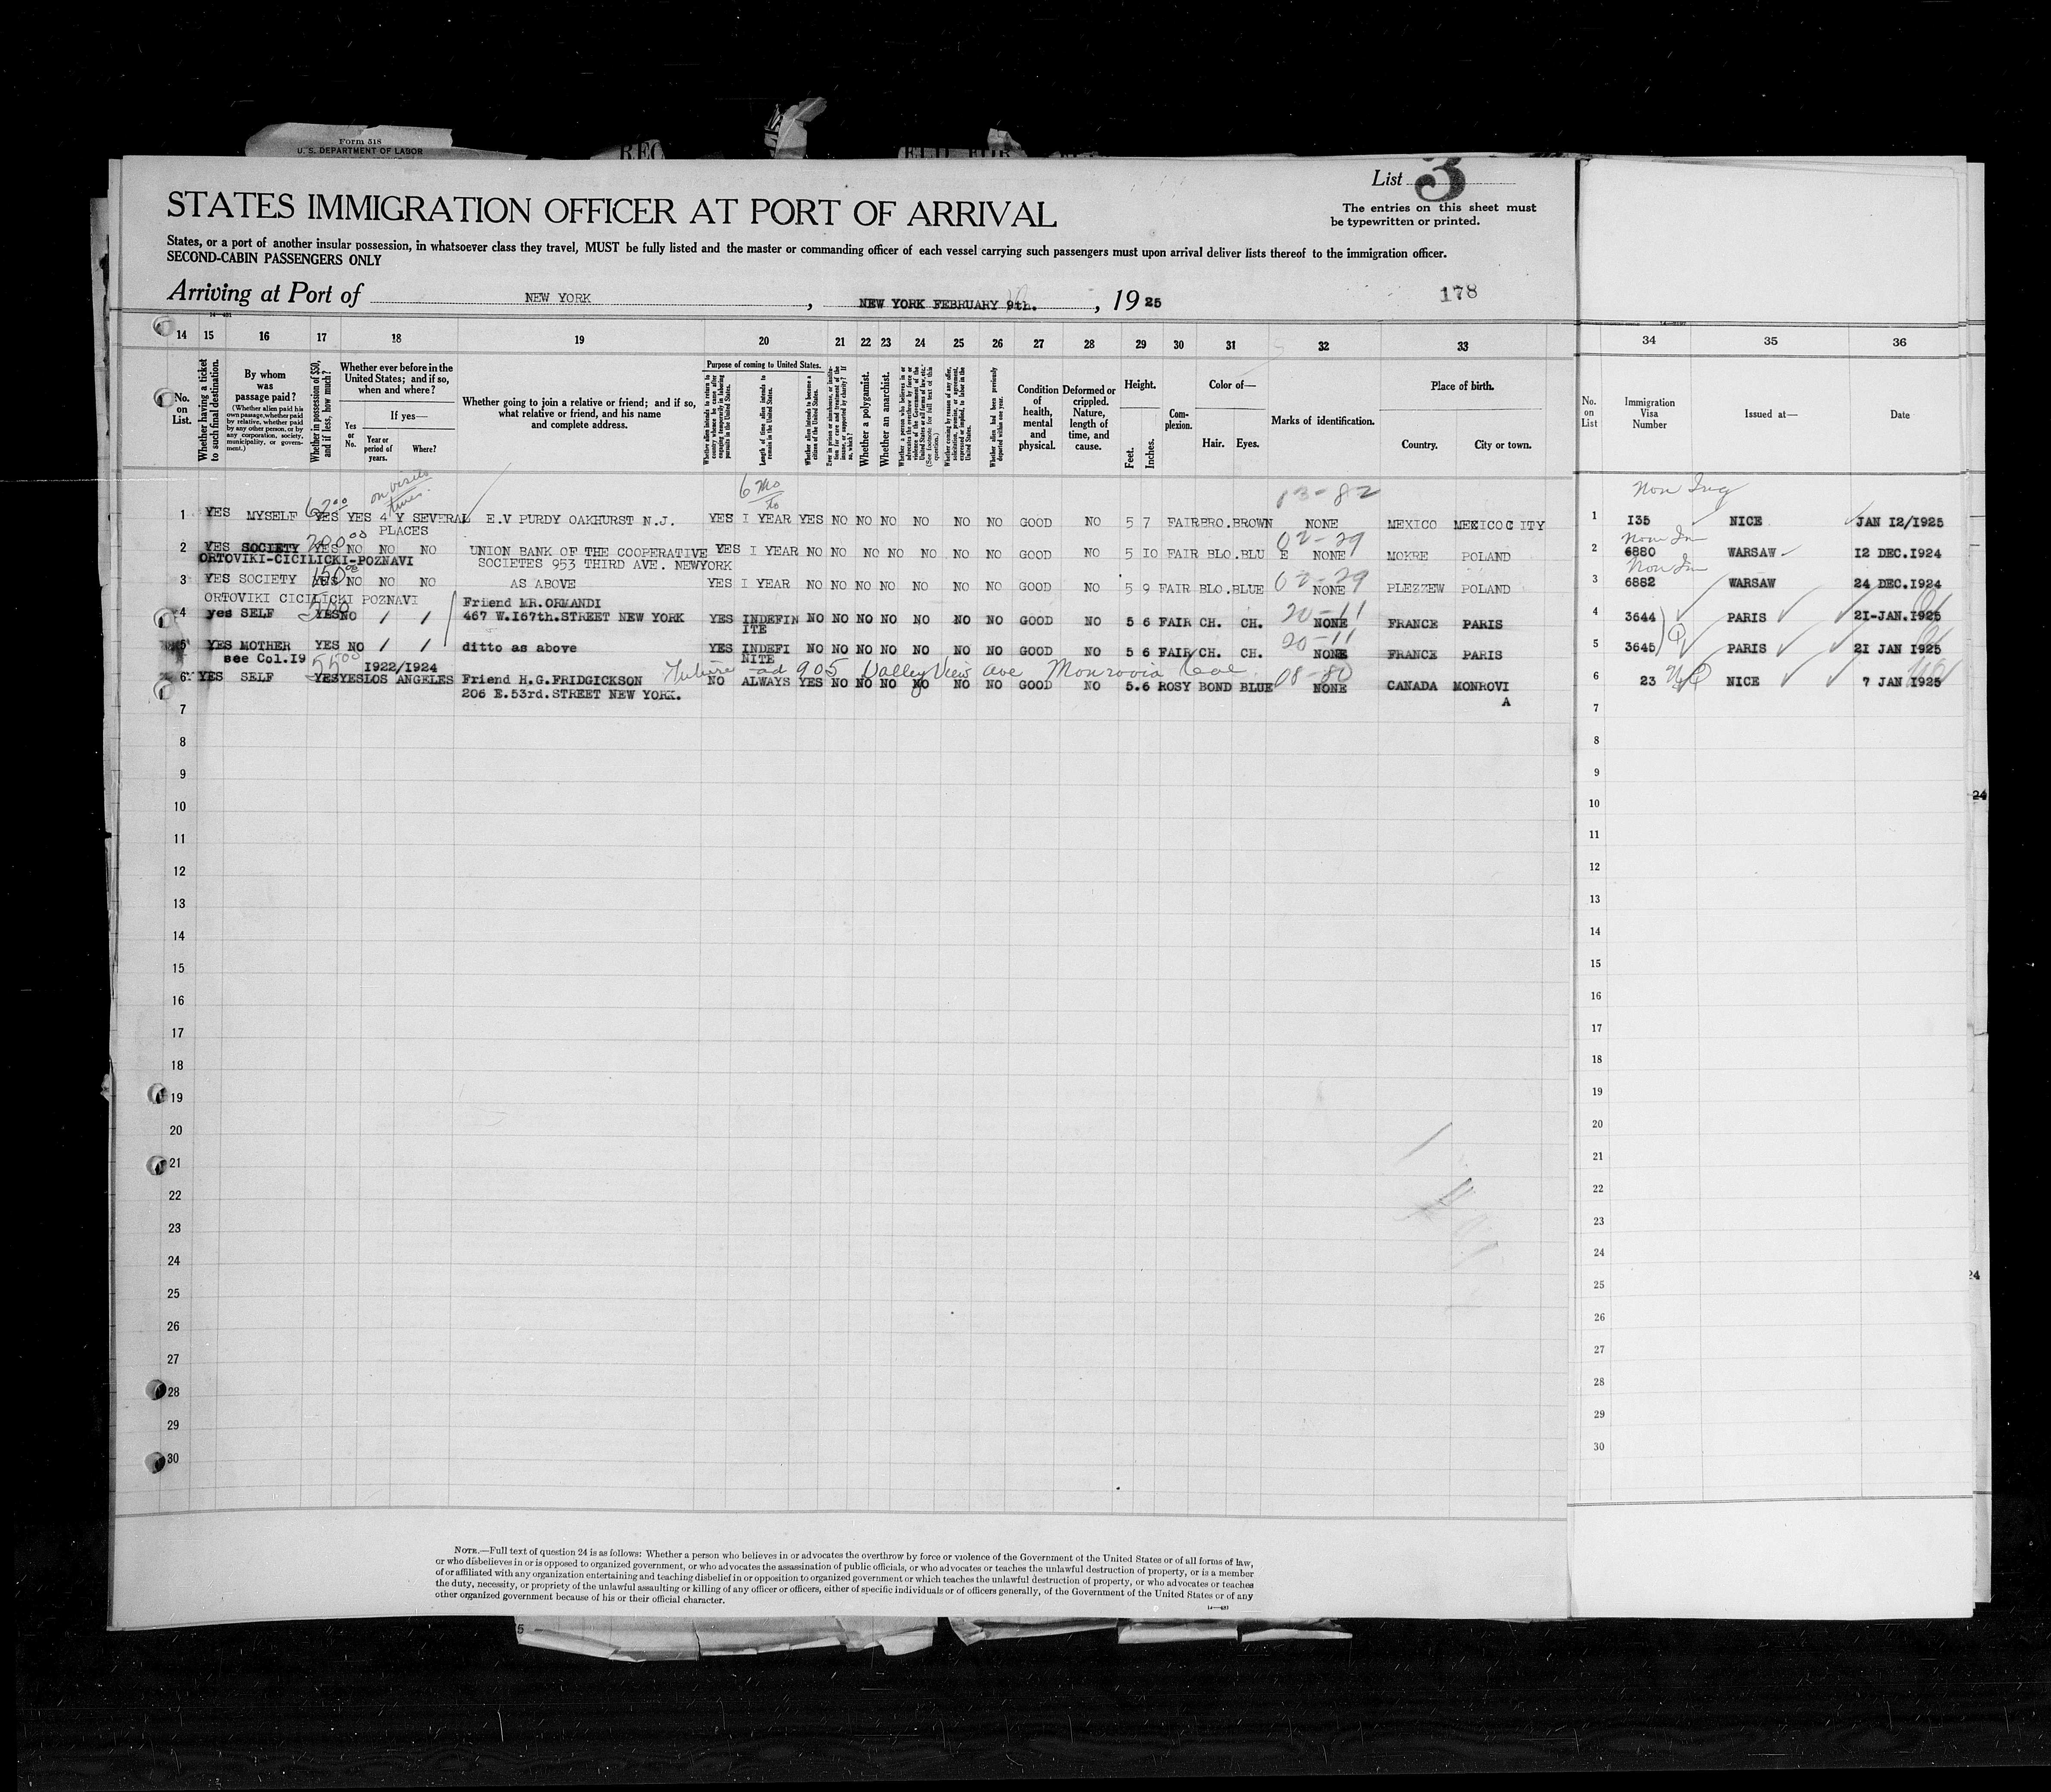 Form 518
U. S. DEPARTMENT OF LABOR
List 3
STATES IMMIGRATION OFFICER AT PORT OF ARRIVAL
The entries on this sheet must
be typewritten or printed.
States, or a port of another insular possession, in whatsoever class they travel, MUST be fully listed and the master or commanding officer of each vessel carrying such passengers must upon arrival deliver lists thereof to the immigration officer.
SECOND-CABIN PASSENGERS ONLY
Arriving at Port of NEW YORK, NEW YORK FEBRUARY 9th., 1925
178
14 15 16 17 18 19 20 21 22 23 24 25 26 27 28 29 30 31 32 33 34 35 36
No. on List.
Whether having a ticket to such final destination.
By whom was passage paid?
(Whether alien paid his own passage, whether paid by relative, whether paid by any other person, or by any corporation, society, municipality, or government.)
Whether in possession of $50, and if less, how much?
Whether ever before in the United States; and if so, when and where?
Yes or No.
If yes—
Year or period of years.
Where?
Whether going to join a relative or friend; and if so, what relative or friend, and his name and complete address.
Purpose of coming to United States.
Length of time alien intends to remain in the United States.
Whether alien intends to become a citizen of the United States.
Whether a polygamist.
Whether an anarchist.
Condition of health, mental and physical.
Deformed or crippled. Nature, length of time, and cause.
Height.
Feet.
Inches.
Complexion.
Color of—
Hair.
Eyes.
Marks of identification.
Place of birth.
Country.
City or town.
No. on List
Immigration Visa Number
Issued at—
Date
62.00 on visits 6 mo to 13-82
1 YES MYSELF YES YES 4 Y SEVERAL PLACES E.V PURDY OAKHURST N.J. YES I YEAR YES NO NO NO NO NO NO GOOD NO 5 7 FAIR BRO. BROWN NONE MEXICO MEXICO C ITY 1 I35 NICE JAN I2/1925
200.00 02-29
2 YES SOCIETY YES NO NO NO UNION BANK OF THE COOPERATIVE YES I YEAR NO NO NO NO NO NO NO GOOD NO 5 IO FAIR BLO. BLU E NONE MOKRE POLAND 2 6880 WARSAW 12 DEC.1924
ORTOVIKI-CICILICKI-POZNAVI SOCIETES 953 THIRD AVE. NEWYORK
150.00 02-29
3 YES SOCIETY YES NO NO NO AS ABOVE YES I YEAR NO NO NO NO NO NO NO GOOD NO 5 9 FAIR BLO. BLUE NONE PLEZZEW POLAND 3 6882 WARSAW 24 DEC.1924
ORTOVIKI CICILICKI POZNAVI
Friend MR.ORMANDI
4 yes SELF YES NO / / 467 W.I67th.STREET NEW YORK YES INDEFIN ITE NO NO NO NO NO NO NO GOOD NO 5 6 FAIR CH. CH. 20-11 NONE FRANCE PARIS 4 3644 PARIS 21-JAN.1925
5 YES MOTHER YES NO / / ditto as above YES INDEFI NITE NO NO NO NO NO NO NO GOOD NO 5 6 FAIR CH. CH. 20-11 NONE FRANCE PARIS 5 3645 PARIS 21 JAN 1925
see Col.I9
1922/1924 Future ad 905 Valley View Ave Monrovia Cal
6 YES SELF YES YES LOS ANGELES Friend H.G.FRIDGICKSON NO ALWAYS YES NO NO NO NO NO NO GOOD NO 5.6 ROSY BOND BLUE 08-80 NONE CANADA MONROVI A 6 23 NICE 7 JAN 1925
206 E.53rd.STREET NEW YORK.
7 7
8 8
9 9
10 10
11 11
12 12
13 13
14 14
15 15
16 16
17 17
18 18
19 19
20 20
21 21
22 22
23 23
24 24
25 25
26 26
27 27
28 28
29 29
30 30
24
24
NOTE.—Full text of question 24 is as follows: Whether a person who believes in or advocates the overthrow by force or violence of the Government of the United States or of all forms of law,
or who disbelieves in or is opposed to organized government, or who advocates the assassination of public officials, or who advocates or teaches the unlawful destruction of property, or is a member
of or affiliated with any organization entertaining and teaching disbelief in or opposition to organized government or which teaches the unlawful destruction of property, or who advocates or teaches
the duty, necessity, or propriety of the unlawful assaulting or killing of any officer or officers, either of specific individuals or of officers generally, of the Government of the United States or of any
other organized government because of his or their official character.